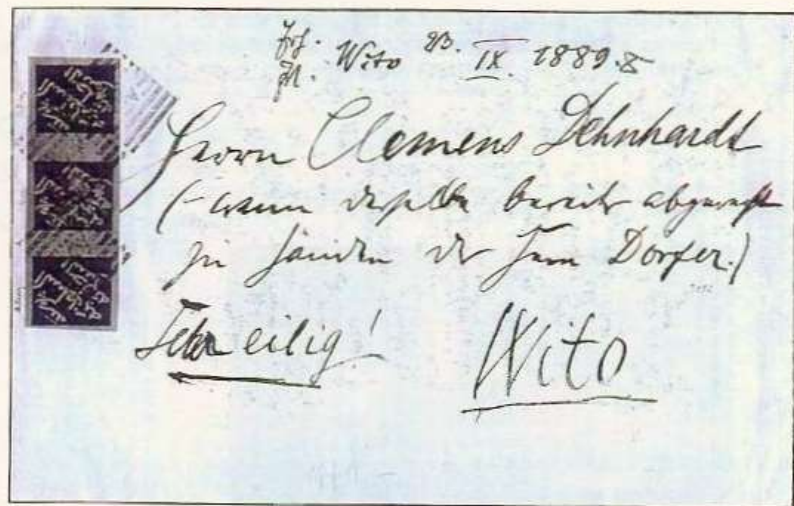 Wito 23. IX. 1889.
Herrn Clemens Dehnhardt
(– wenn derselbe bereits abgereist
zu Händen des Herrn Dörfer.)
Sehr eilig!
Wito